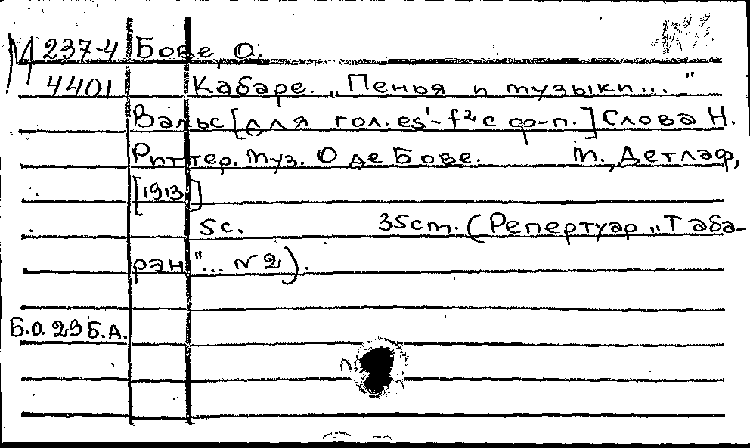 М 237-4 Бове, О.
4401 Кабаре. „Пенья и музыки..."
Вальс [для гол. es'-f² с ф-п.] Слова Н.
Риттер. Муз. О де Бове. М., Детлаф,
[1913]
5 с. 35 cm. (Репертуар „Таба-
рэн"... № 2).
Б.О. 29 Б.А.